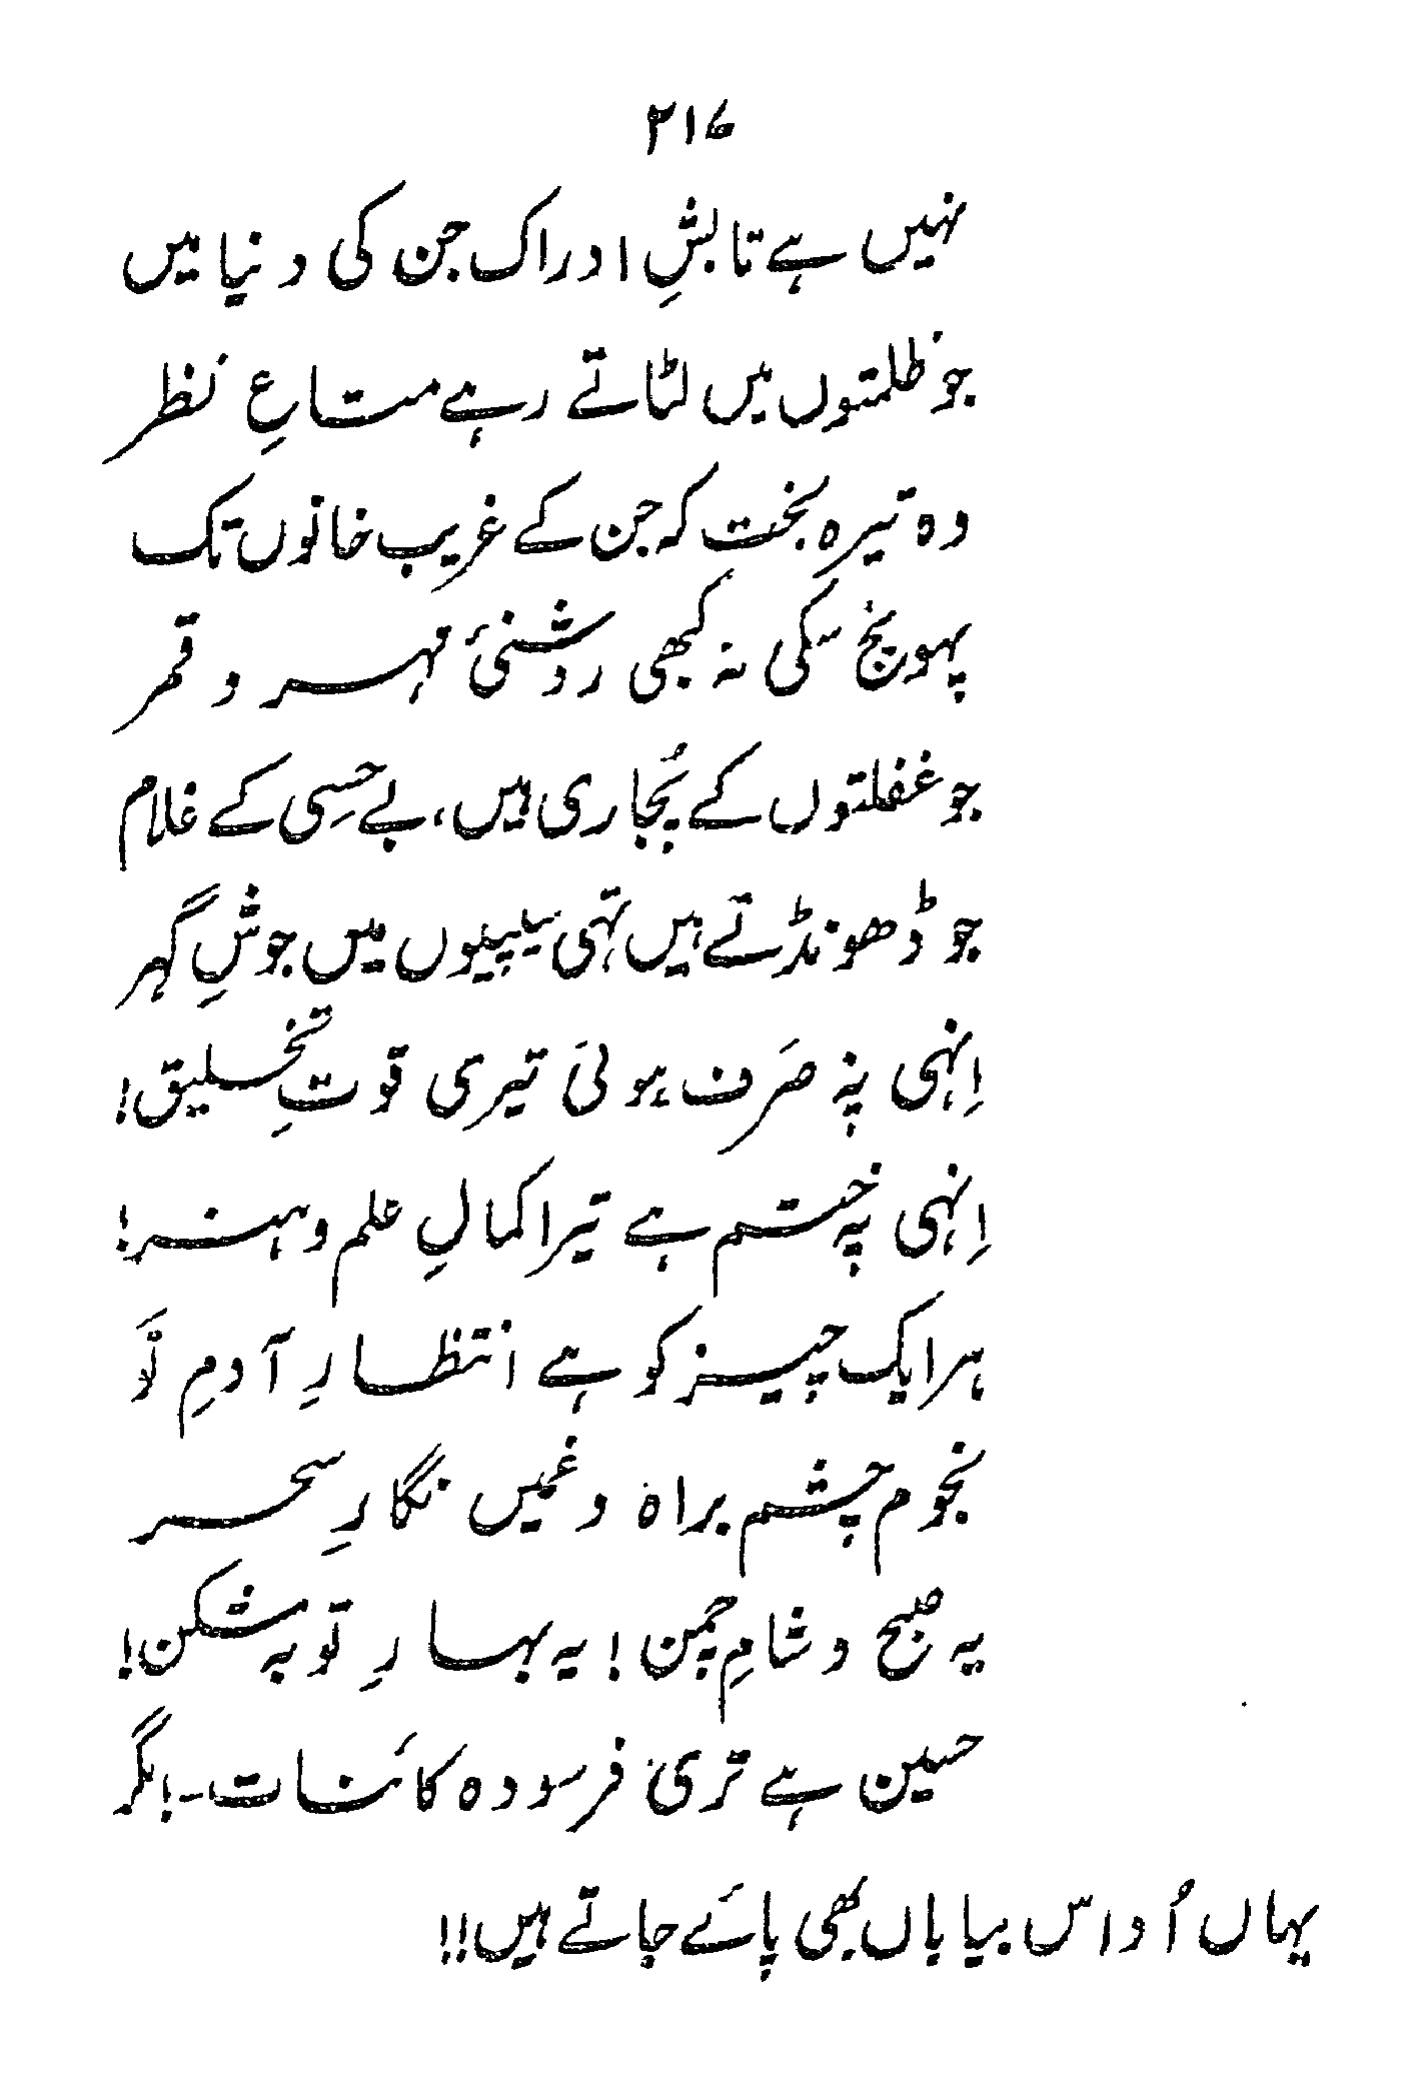 ۲۱۶
نہیں ہے تابشِ ادراک جن کی دنیا میں
جو ظلمتوں میں لٹاتے رہے متاعِ نظر
وہ تیرہ بخت کہ جن کے غریب خانوں تک
پہونچ سکی نہ کبھی روشنیٔ مہر و قمر
جو غفلتوں کے پُجاری ہیں، بے حِسی کے غلام
جو ڈھونڈتے ہیں تہی سیپیوں میں جوشِ گہر
اِنہی پہ صَرف ہوئی تیری قوتِ تخلیق!
اِنہی پہ ختم ہے تیرا کمالِ علم و ہنر!
ہر ایک چیز کو ہے انتظارِ آدمِ نَو
نجوم چشم براہ و غمیں نگارِ سحر
یہ صبح و شامِ چمن! یہ بہارِ توبہ شکن!
حسین ہے تری فرسودہ کائنات۔! مگر
یہاں اُداس بیاباں بھی پائے جاتے ہیں!!